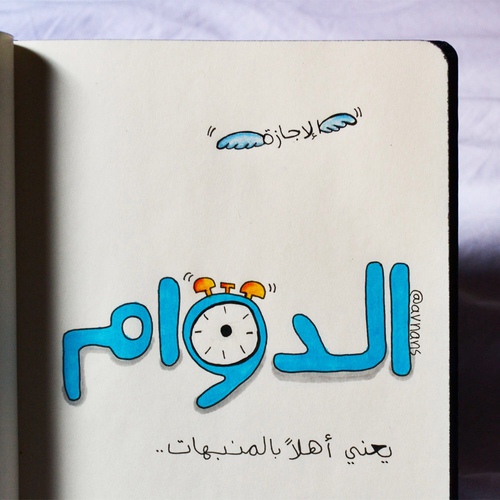 الإجازة
الدوام
@avnans
يعني أهلاً بالمنبهات..